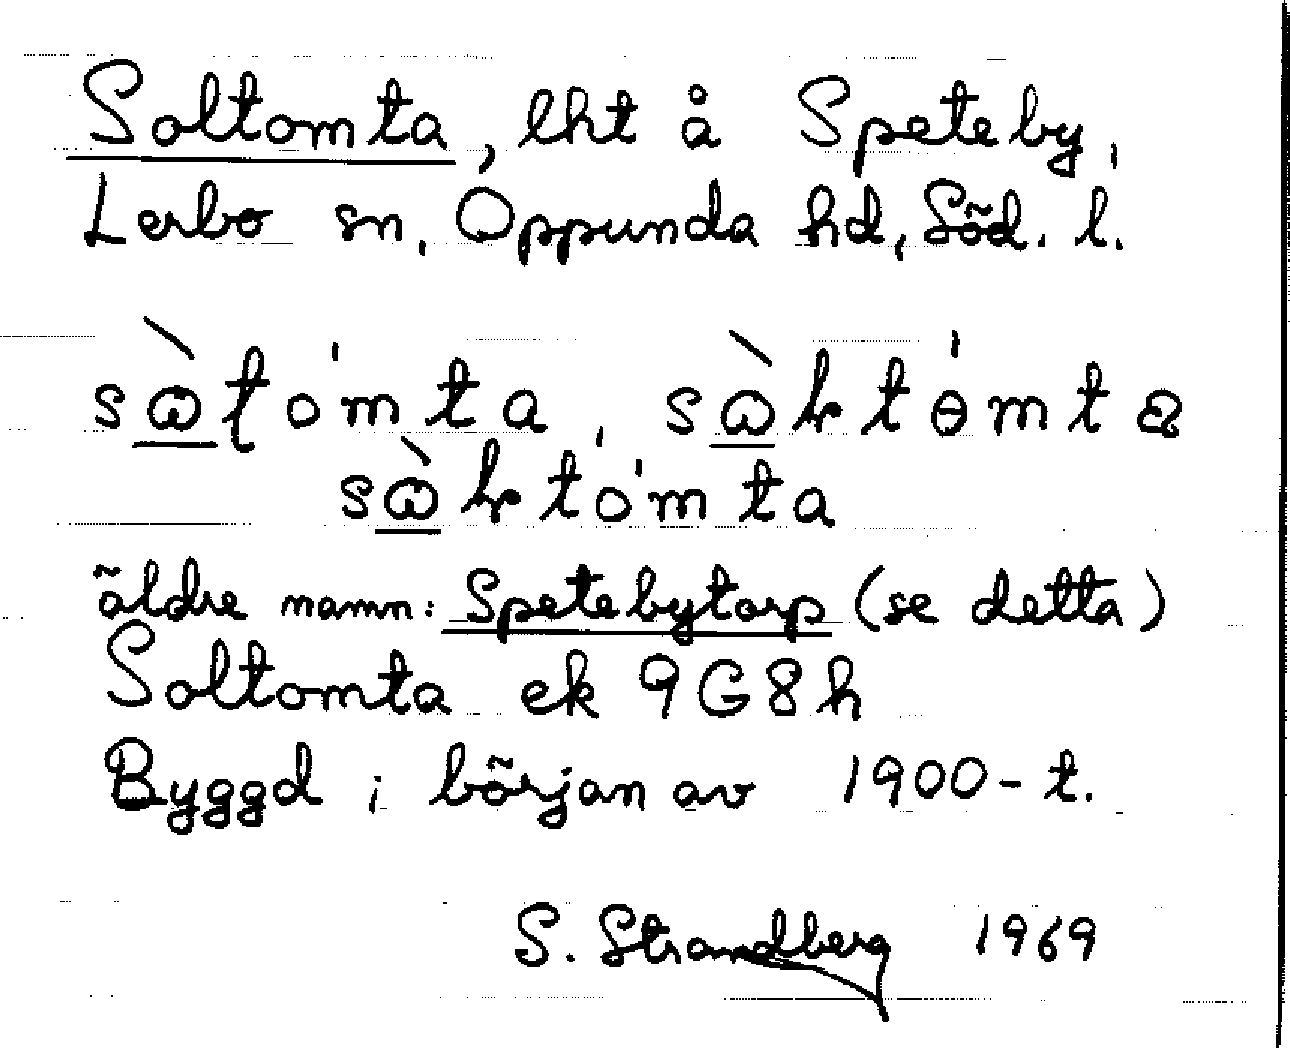 Soltomta, lht å Speteby,
Lerbo sn, Oppunda hd, Söd. l.
äldre namn: Spetebytorp (se detta)
Soltomta ek 9G8h
Byggd i början av 1900-t.
S. Strandberg 1969